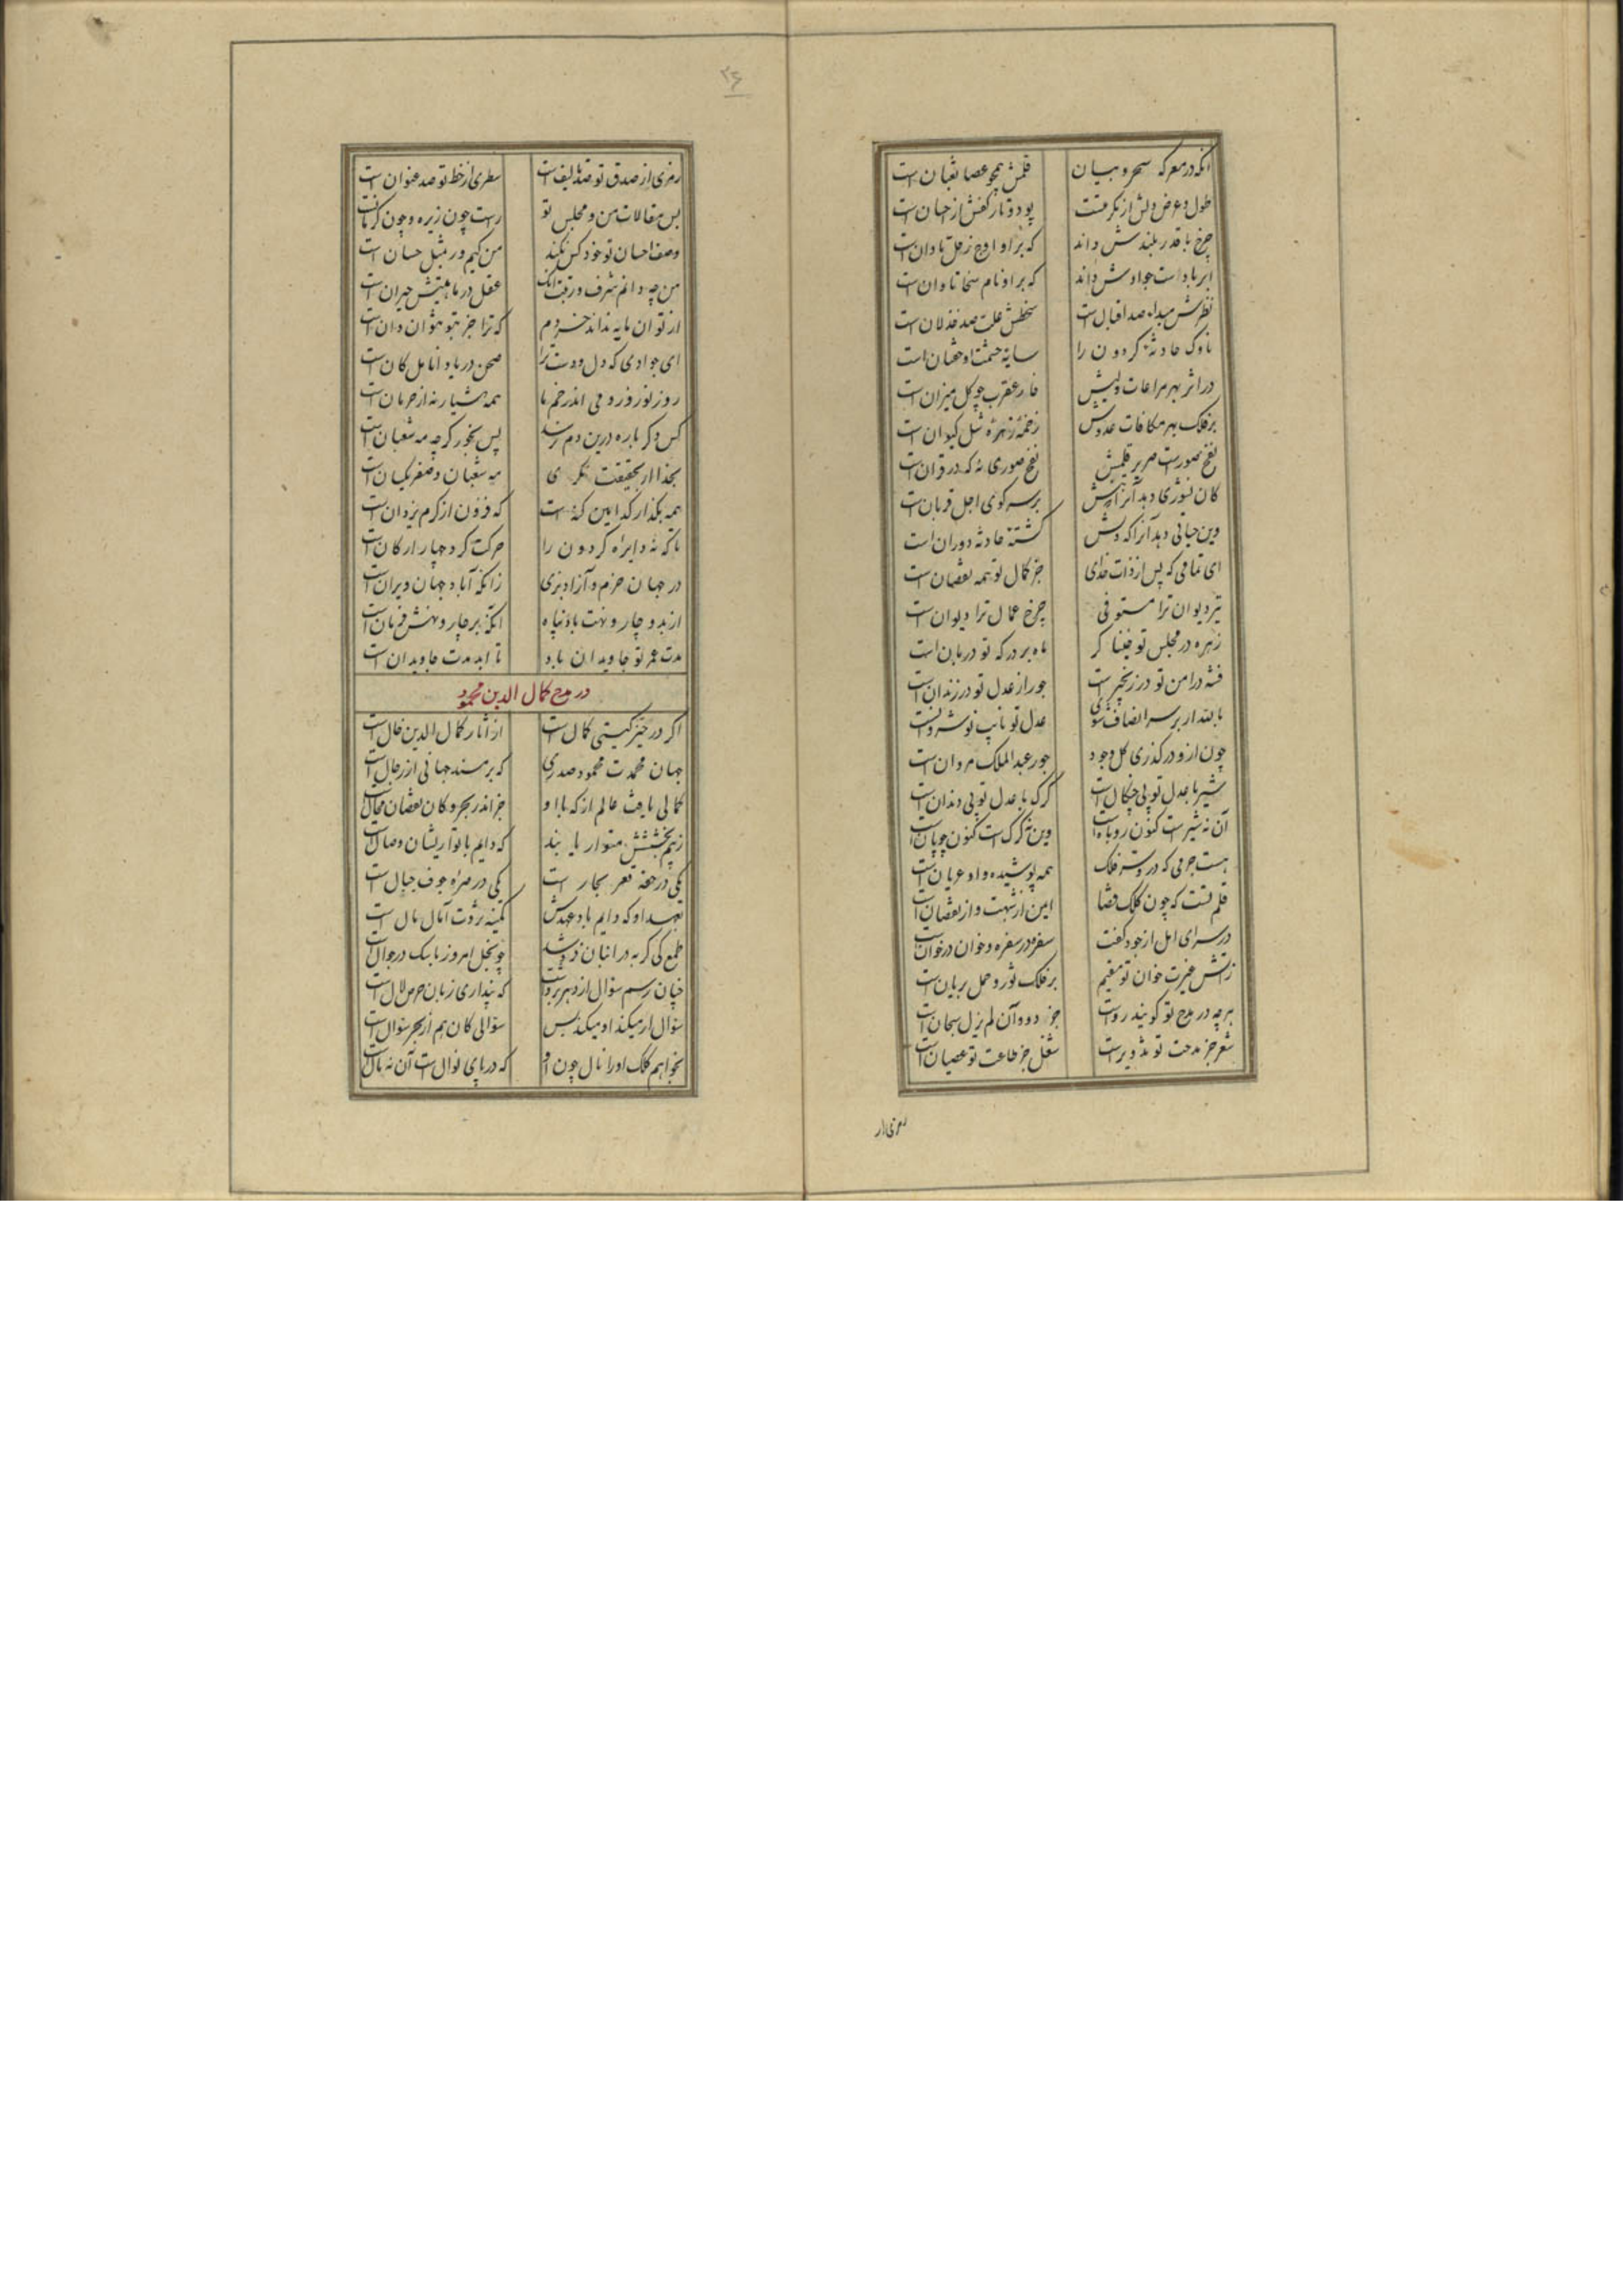 آنکه در معرکه سحر و بیان قلمش همچو عصا ثعبان است
طول و عرض دلش از مکرمتست پود و تار کفش از احسان است
چرخ با قدر بلندش داند که بر او اوج زحل تاوان است
ابر با دست جوادش داند که بر او نام سخا تاوان است
نظرش مبداء صد اقبال است سخطش علت صد خذلان است
ناوک حادثه گردون را سایه حشمت او خفتان است
در اثر بهر مراعات ولیش خار عقرب چو گل میزان است
بر فلک بهر مکافات عدوش زخمه زهره شل کیوان است
نفخ صورست صریر قلمش نفخ صوری نه که در قرآن است
کان نشوری دهد آنرا که تنش بر سر کوی اجل قربان است
وین حیاتی دهد آنرا که دلش کشته حادثه دوران است
ای تمامی که پس از ذات خدای جز کمال تو همه نقصان است
تیر دیوان ترا مستوفی چرخ عمال ترا دیوان است
زهره در مجلس تو خنیاگر ماه بر درگه تو دربان است
فتنه در امن تو در زنجیرست جور از عدل تو در زندان است
بالله ار بر سر انصاف شوی عدل تو نایب نوشروانست
چون ازو درگذری کل وجود جور عبدالملک مروان است
شیر با عدل تو بی چنگال است گرگ با عدل تو بی دندان است
آن نه شیرست کنون روباه است وین نه گرگ است کنون چوپان است
هست جرمی که درو ستر فلک همه پوشیده و او عریان است
قلم تست که چون کلک قضا ایمن از شبهت و از نقصان است
در سرای امل از جود کفت سفره در سفره و خوان در خوان است
زآتش غیرت خوان تو مقیم بر فلک ثور و حمل بریان است
هر چه در مدح تو گویند رواست جز دو وآن لم یزل سبحان است
شعر جز مدحت تو تزویرست شغل جز طاعت تو عصیان است
۲۶
رمزی از صدق تو صد تالیف است سطری از خط تو صد عنوان است
بس مقالات من و مجلس تو راست چون زیره و چون کرمانست
وصف احسان تو خود کس نکند من کیم ور بمثل حسان است
من چه دانم شرف و رتبت آنک عقل در ماهیتش حیران است
از تو آن مایه نداند خردم که ترا جز بتو نتوان دانست
ای جوادی که دل و دست ترا صحن دریا و انامل کان است
روز نوروز و می اندر خم ما همه هشیار نه از حرمان است
کس دگر باره درین دم نرسد پس بخور گر چه مه شعبان است
بخدا ار بحقیقت نگری مه شعبان و صفر یکسان است
همه بگذار کدامین گنه است که فزون از کرم یزدان است
تا که نه دایره گردون را حرکت گرد چهار ارکان است
در جهان خرم و آباد بزی زانکه آباد جهان ویران است
از بد و چار و نهت باد پناه آنکه بر چار و نهش فرمان است
مدت عمر تو جاویدان باد تا ابد مدت جاویدان است
در مدح کمال الدین محمود
اگر در حیز گیتی کمال است از آثار کمال الدین خال است
جهان محمدت محمود صدری که بر مسند جهانی از رجال است
کمالی یافت عالم از که با او جز اندر بحر و کان نقصان محال است
ز بیم بخشش متواریانند که دایم با تواریشان وصال است
یکی در حقه قعر بحار است یکی در صره جوف جبال است
بعهد او که دایم باد عهدش کمینه ثروت آمال مال است
طمع کی گربه در انبان فروشد چو بخل امروز با سگ در جوال است
چنان رسم سؤال از دهر برداشت که پنداری زبان حرص لال است
سؤال ار میکند او میکند بس سؤالی کان هم از بهر سؤال است
نخواهم کلک او را نال چون او که دریای نوال است آن نه نال است